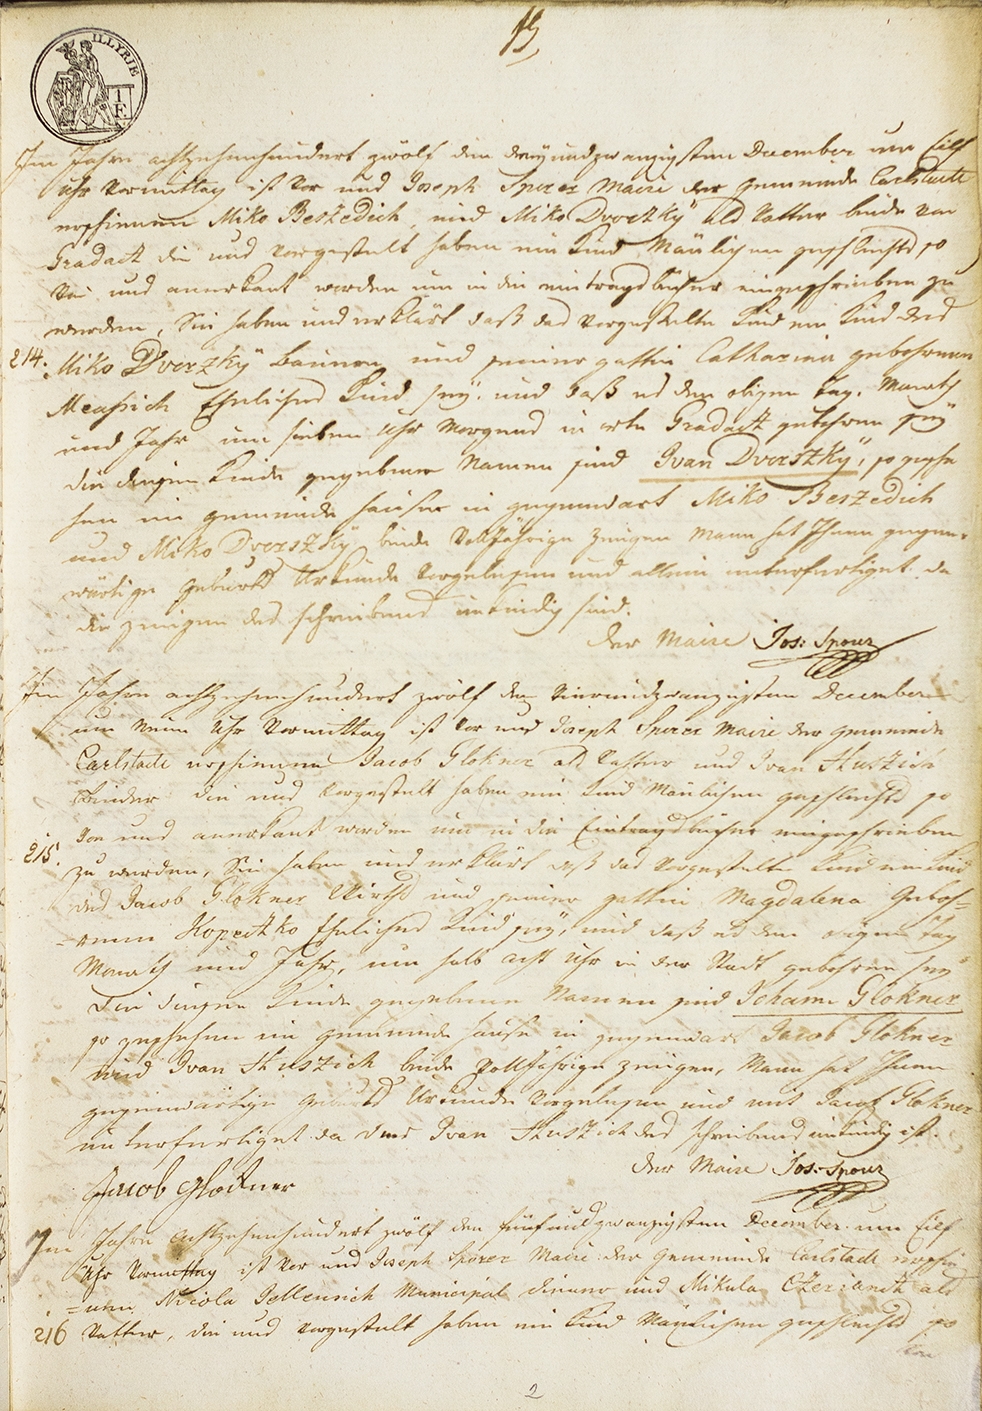 ILLYRIE
Im Jahre achtzehenhundert zwölf den dreyundzwanzigsten December um Eilf
Uhr Vormittag ist Vor uns Joseph Sporer Maire der Gemeinde Carlstadt
erschienen Miko Beszedich und Miko Dvorzky als Vatter beide Von
Gradatz die uns Vorgestelt haben ein Kind Mänlichen geschlechts so
Von uns anerkant worden um in die eintragsbücher eingeschrieben zu
werden, Sie haben uns erklärt daß das Vorgestelte Kind ein Kind des
214. Miko Dverzky Bauren und seiner gattin Catharina gebohrenen
Ehrliches Kind sey, und daß es den obigen Tag, Monath
und Jahr um sieben Uhr Morgens in orte Gradatz gebohren sey
die diesem Kinde gegebene Namen sind Ivan Dverszky, so gesche
hen im gemeinde hause in gegenwart Miko Beszedich
und Miko Dverszky beide Volljährige zeugen Mann hat Ihnen gegen-
wärtige Geburts Urkunde Vorgelesen und allein unterfertiget da
die zeugen des schreibens unkündig sind.
Der Maire Jos: Sporer
Im Jahre achtzehenhundert zwölf den Vierundzwanzigsten December
um Neun Uhr Vormittag ist Vor uns Joseph Sporer Maire der gemeinde
Carlstadt erschienen Jacob Glokner als Vatter und Ivan Stuszich
Binder die uns Vorgestelt haben ein Kind Mänlichen geschlechts so
Von uns anerkant worden um in die Eintragsbücher eingeschrieben
215. zu werden, Sie haben uns erklärt daß das Vorgestelte Kind ein Kind
des Jacob Glokner Wirths und seiner gattin Magdalena Geboh-
-renen Kopeitko Ehrliches Kind sey, und daß es den obigen Tag
Monath und Jahr, um halb acht Uhr in der Stadt gebohren sey
die diesem Kinde gegebene Namen sind Johann Glokner
so geschehen im gemeinde hause in gegenwart Jacob Glokner
und Ivan Stuszich beide Volljährige zeugen, Mann hat Ihnen
gegenwärtige Geburts Urkunde Vorgelesen und mit Jacob Glokner
unterfertiget da Ivan Stuszich des schreibens unkündig ist.
Der Maire Jos: Sporer
Jacob Glockner
Im Jahre Achtzehenhundert zwölf den fünfundzwanzigsten December um Eilf
Uhr Vormittag ist Vor uns Joseph Sporer Maire der Gemeinde Carlstadt erschie-
-nen, Nicola Jellensich Municipal diener und Mikula als
216 Vatter, die uns Vorgestelt haben ein Kind Mänlichen geschlechts so
Von
2